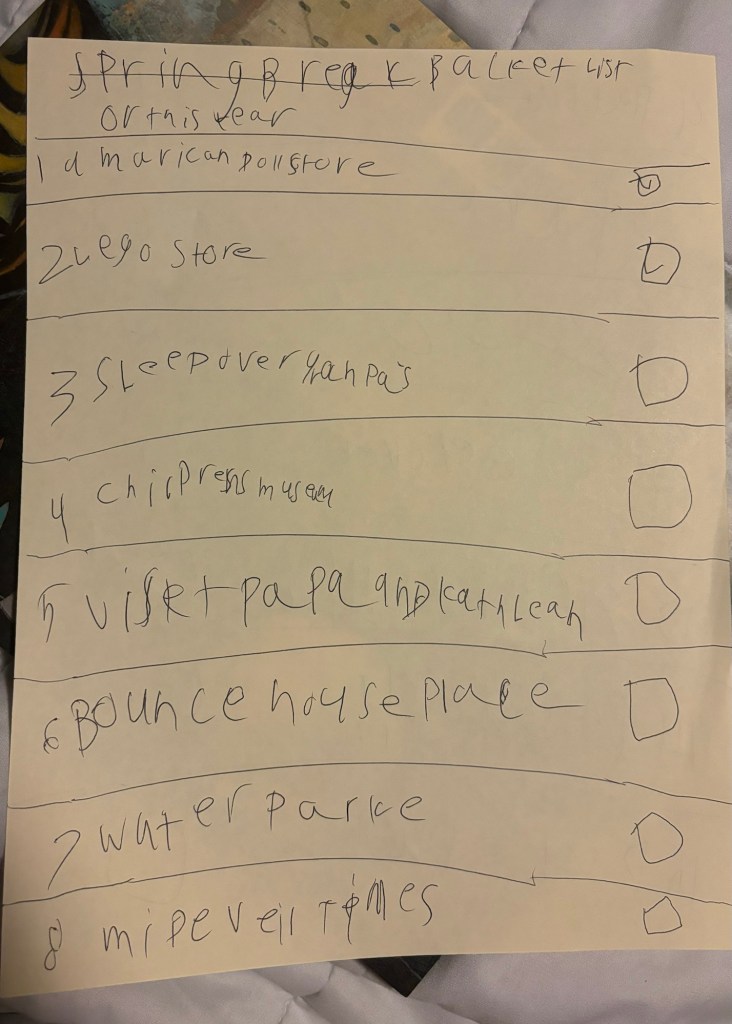 Spring Break Backet List
or this year
1 amarican Doll store
2 Lego store
3 Sleepover Granpa's
4 chilDrens museum
5 viset papa anD kathLean
6 Bounce house place
7 water parke
8 miDevell times